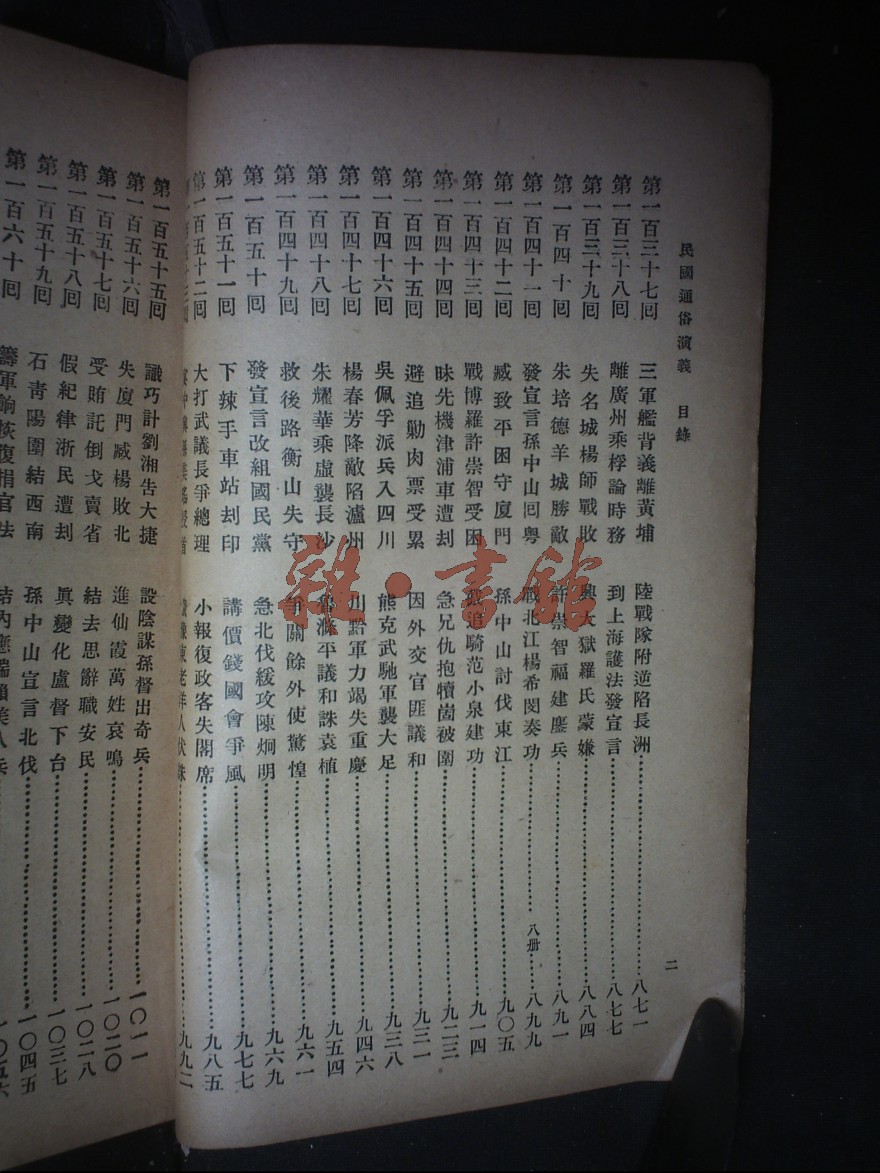 民國通俗演義 目錄
二
第一百三十七囘 三軍艦背義離黃埔 陸戰隊附逆陷長洲 八七一
第一百三十八囘 離廣州乘桴論時務 到上海護法發宣言 八七七
第一百三十九囘 失名城楊師戰敗 興大獄羅氏蒙嫌 八八四
第一百四十囘 朱培德羊城勝敵 許崇智福建鏖兵 八九一
第一百四十一囘 發宣言孫中山囘粵 戰北江楊希閔奏功 八册 八九九
第一百四十二囘 臧致平困守廈門 孫中山討伐東江 九〇五
第一百四十三囘 戰博羅許崇智受困 追騎范小泉建功 九一四
第一百四十四囘 昧先機津浦車遭刦 急兄仇抱犢崮被圍 九二三
第一百四十五囘 避追勦肉票受累 因外交官匪議和 九三一
第一百四十六囘 吳佩孚派兵入四川 熊克武馳軍襲大足 九三八
第一百四十七囘 楊春芳降敵陷瀘州 川黔軍力竭失重慶 九四六
第一百四十八囘 朱耀華乘虛襲長沙 魯滌平議和誅袁植 九五四
第一百四十九囘 救後路衡山失守 爭關餘外使驚惶 九六一
第一百五十囘 發宣言改組國民黨 急北伐緩攻陳炯明 九六九
第一百五十一囘 下辣手車站刦印 講價錢國會爭風 九七七
第一百五十二囘 大打武議長爭總理 小報復政客失閣席 九八五
老洋人伏誅 九九二
第一百五十五囘 識巧計劉湘吿大捷 設陰謀孫督出奇兵 一〇一一
第一百五十六囘 失廈門臧楊敗北 進仙霞萬姓哀鳴 一〇二〇
第一百五十七囘 受賄託倒戈賣省 結去思辭職安民 一〇二八
第一百五十八囘 假紀律浙民遭刦 眞變化盧督下台 一〇三七
第一百五十九囘 石靑陽圍結西南 孫中山宣言北伐 一〇四五
第一百六十囘 籌軍餉恢復捐官法
雜·書館